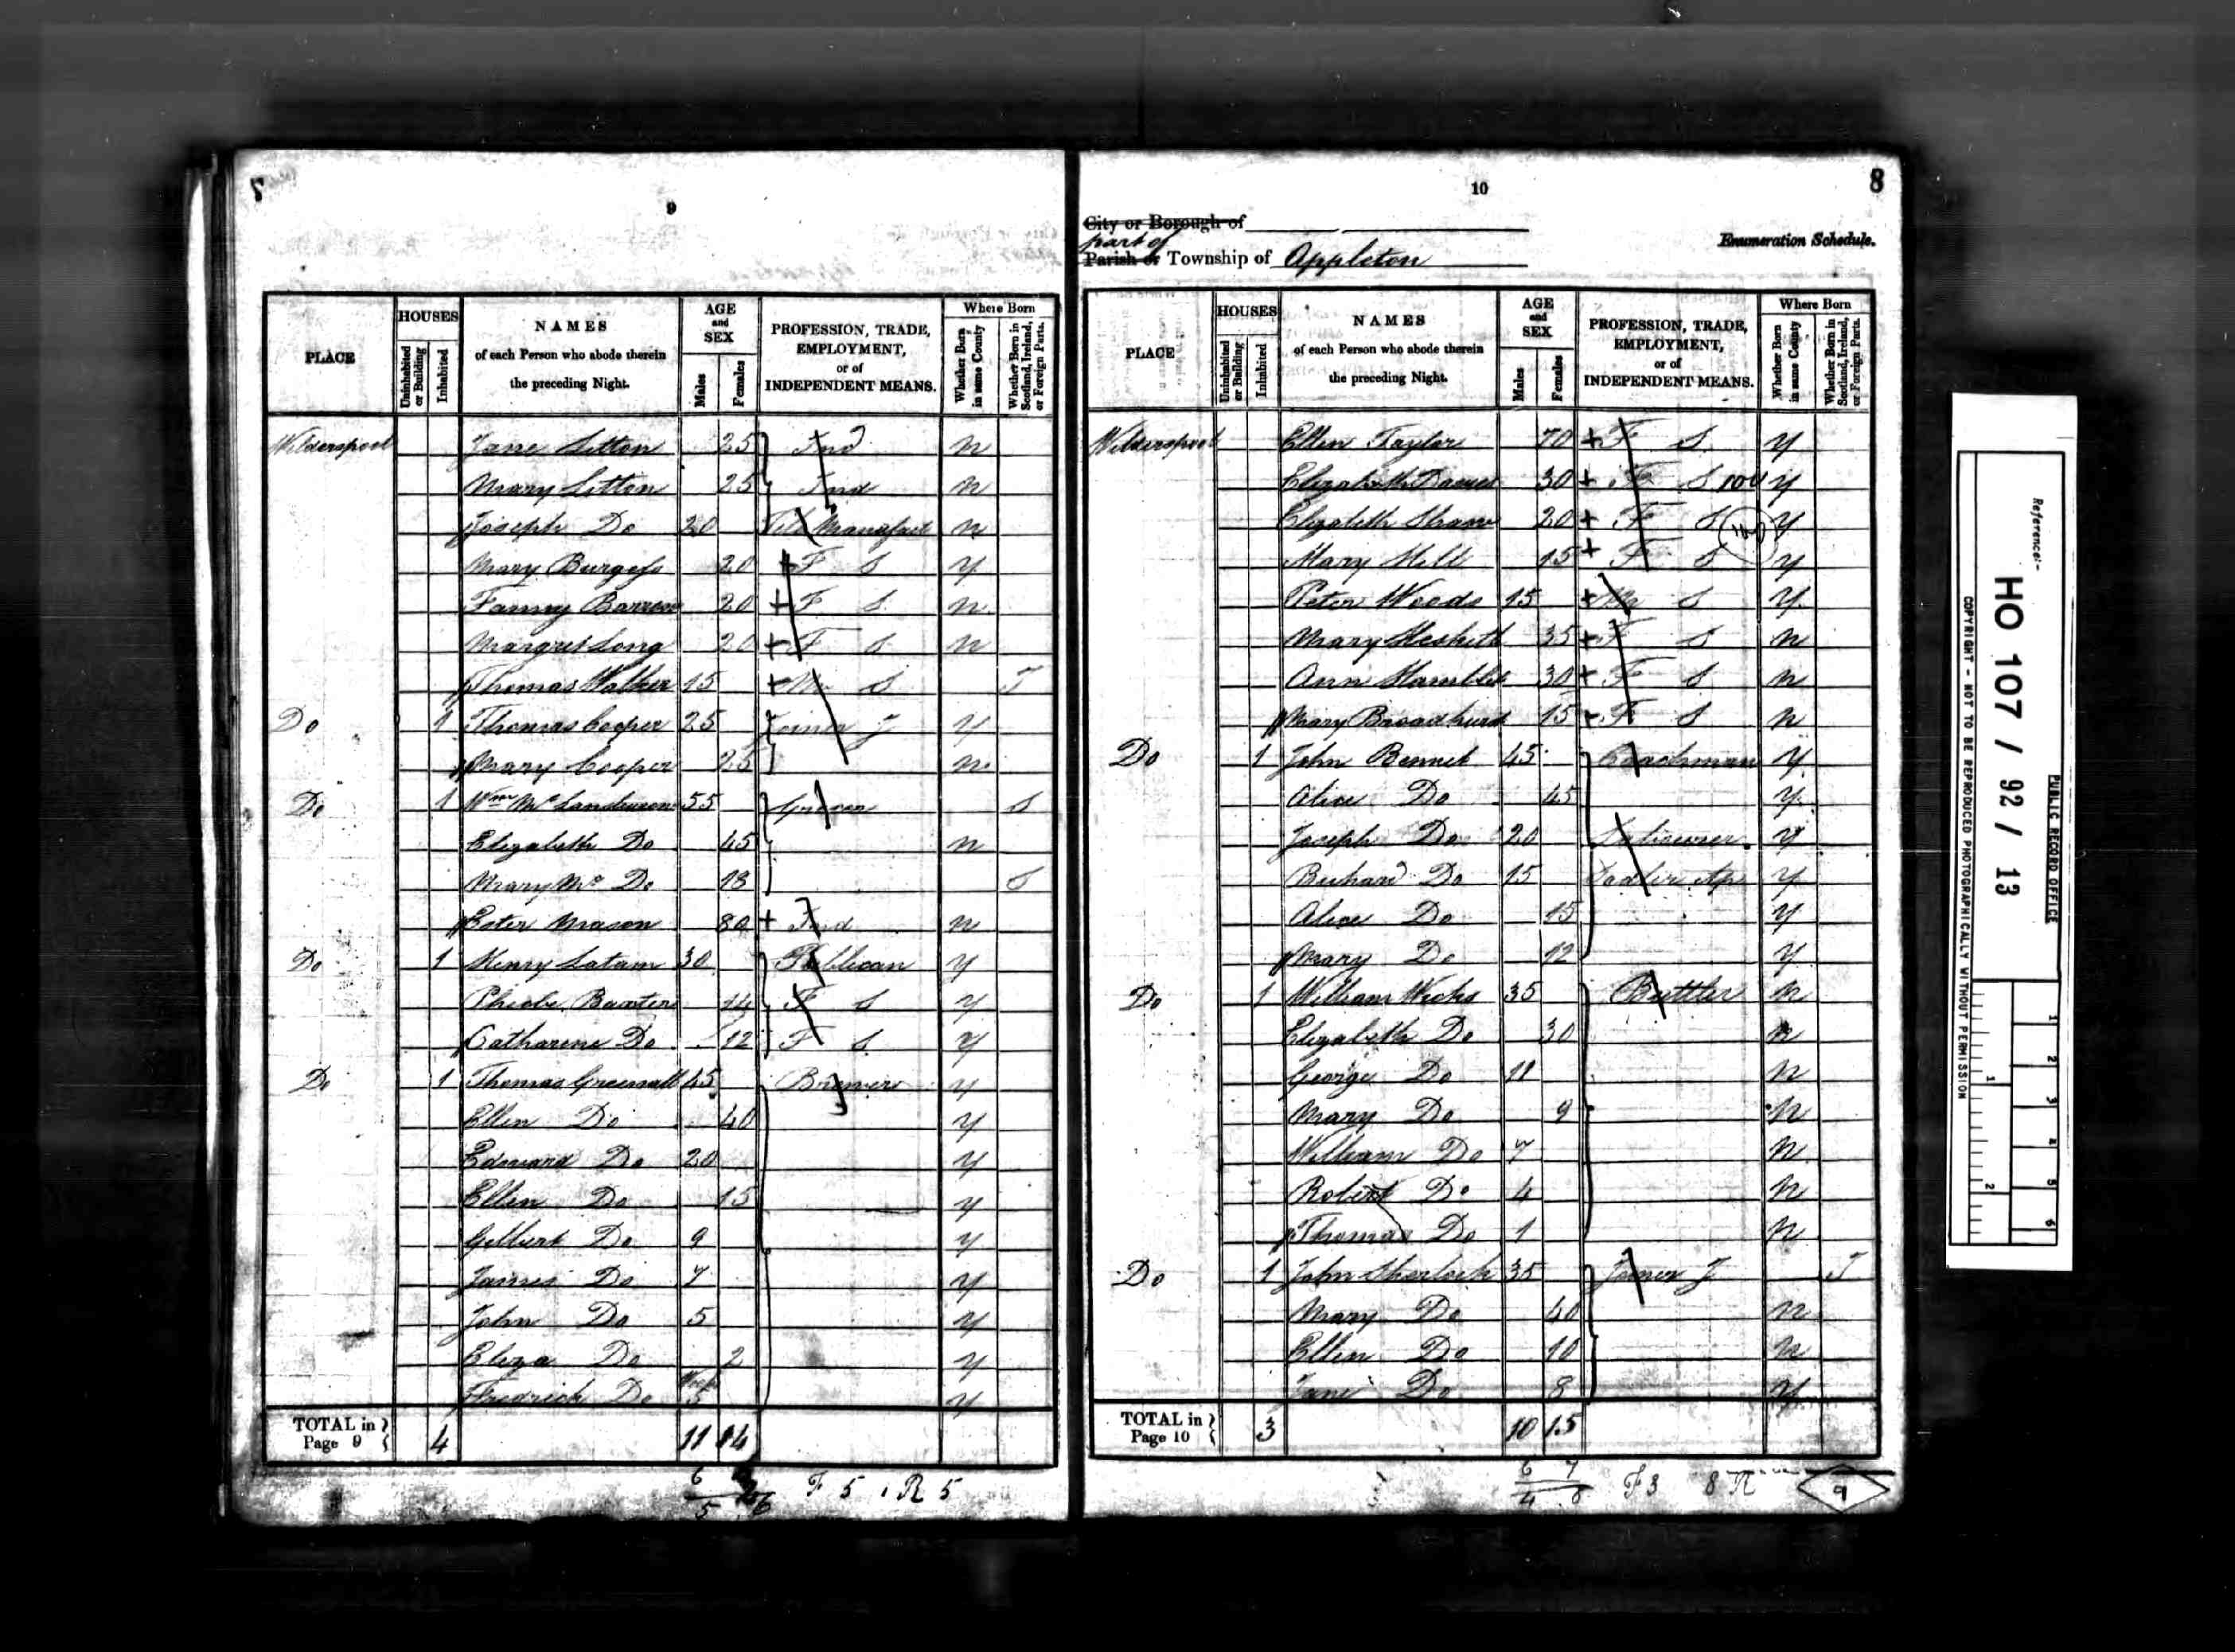 9
PLACE HOUSES Uninhabited or Building Inhabited NAMES of each Person who abode therein the preceding Night. AGE and SEX Males Females PROFESSION, TRADE, EMPLOYMENT, or of INDEPENDENT MEANS. Where Born Whether Born in same County Whether Born in Scotland, Ireland, or Foreign Parts.
Wilderspool Jane Litton 25 Ind n
Mary Litton 25 Ind n
Joseph Do 20 n
Mary Burgess 20 + F S y
Fanny 20 + F S n
Margret Long 20 + F S n
Thomas Walker 15 + M S I
Do 1 Thomas Cooper 25 Joiner J y
Mary Cooper 25 n
Do 1 Wm 55 Grocer S
Elizabeth Do 45 n
Mary Mc Do 13 S
Ester Mason 80 + Ind n
Do 1 Henry Latam 30 Publican y
Phiebe Baxter 14 F S y
Catharine Do 12 F S y
Do 1 Thomas Greenall 45 Brewer y
Ellen Do 40 y
Edward Do 20 y
Ellen Do 15 y
Gilbert Do 9 y
James Do 7 y
John Do 5 y
Eliza Do 2 y
Fredrick Do 5 y
TOTAL in Page 9 4 11 14
F 5 R 5
10
8
City or Borough of
part of
Parish or Township of Appleton
Enumeration Schedule.
PLACE HOUSES Uninhabited or Building Inhabited NAMES of each Person who abode therein the preceding Night. AGE and SEX Males Females PROFESSION, TRADE, EMPLOYMENT, or of INDEPENDENT MEANS. Where Born Whether Born in same County Whether Born in Scotland, Ireland, or Foreign Parts.
Wilderspool Ellen Taylor 70 + F S y
Elizabeth 30 + F S y
Elizabeth Shaw 20 + F S y
Mary Hill 15 + F S y
Peter Woods 15 + M S y
Mary Heskith 35 + F S n
Ann 30 + F S n
Mary Broadhurst 15 + F S n
Do 1 John Bennet 45 Coachman y
Alice Do 45 y
Joseph Do 20 Labourer y
Richard Do 15 Sadler Ap y
Alice Do 15 y
Mary Do 12 y
Do 1 William Weeks 35 Buttler n
Elizabeth Do 30 n
George Do 11 n
Mary Do 9 n
William Do 7 n
Robert Do 4 n
Thomas Do 1 n
Do 1 John Sherlock 35 Joiner J I
Mary Do 40 n
Ellen Do 10 n
Jane Do 8 y
TOTAL in Page 10 3 10 15
6 7
4 8 F 3 8 R 9
Reference:-
HO 107 / 92 / 13
PUBLIC RECORD OFFICE
COPYRIGHT - NOT TO BE REPRODUCED PHOTOGRAPHICALLY WITHOUT PERMISSION
1 2 3 4 5 6
1 2